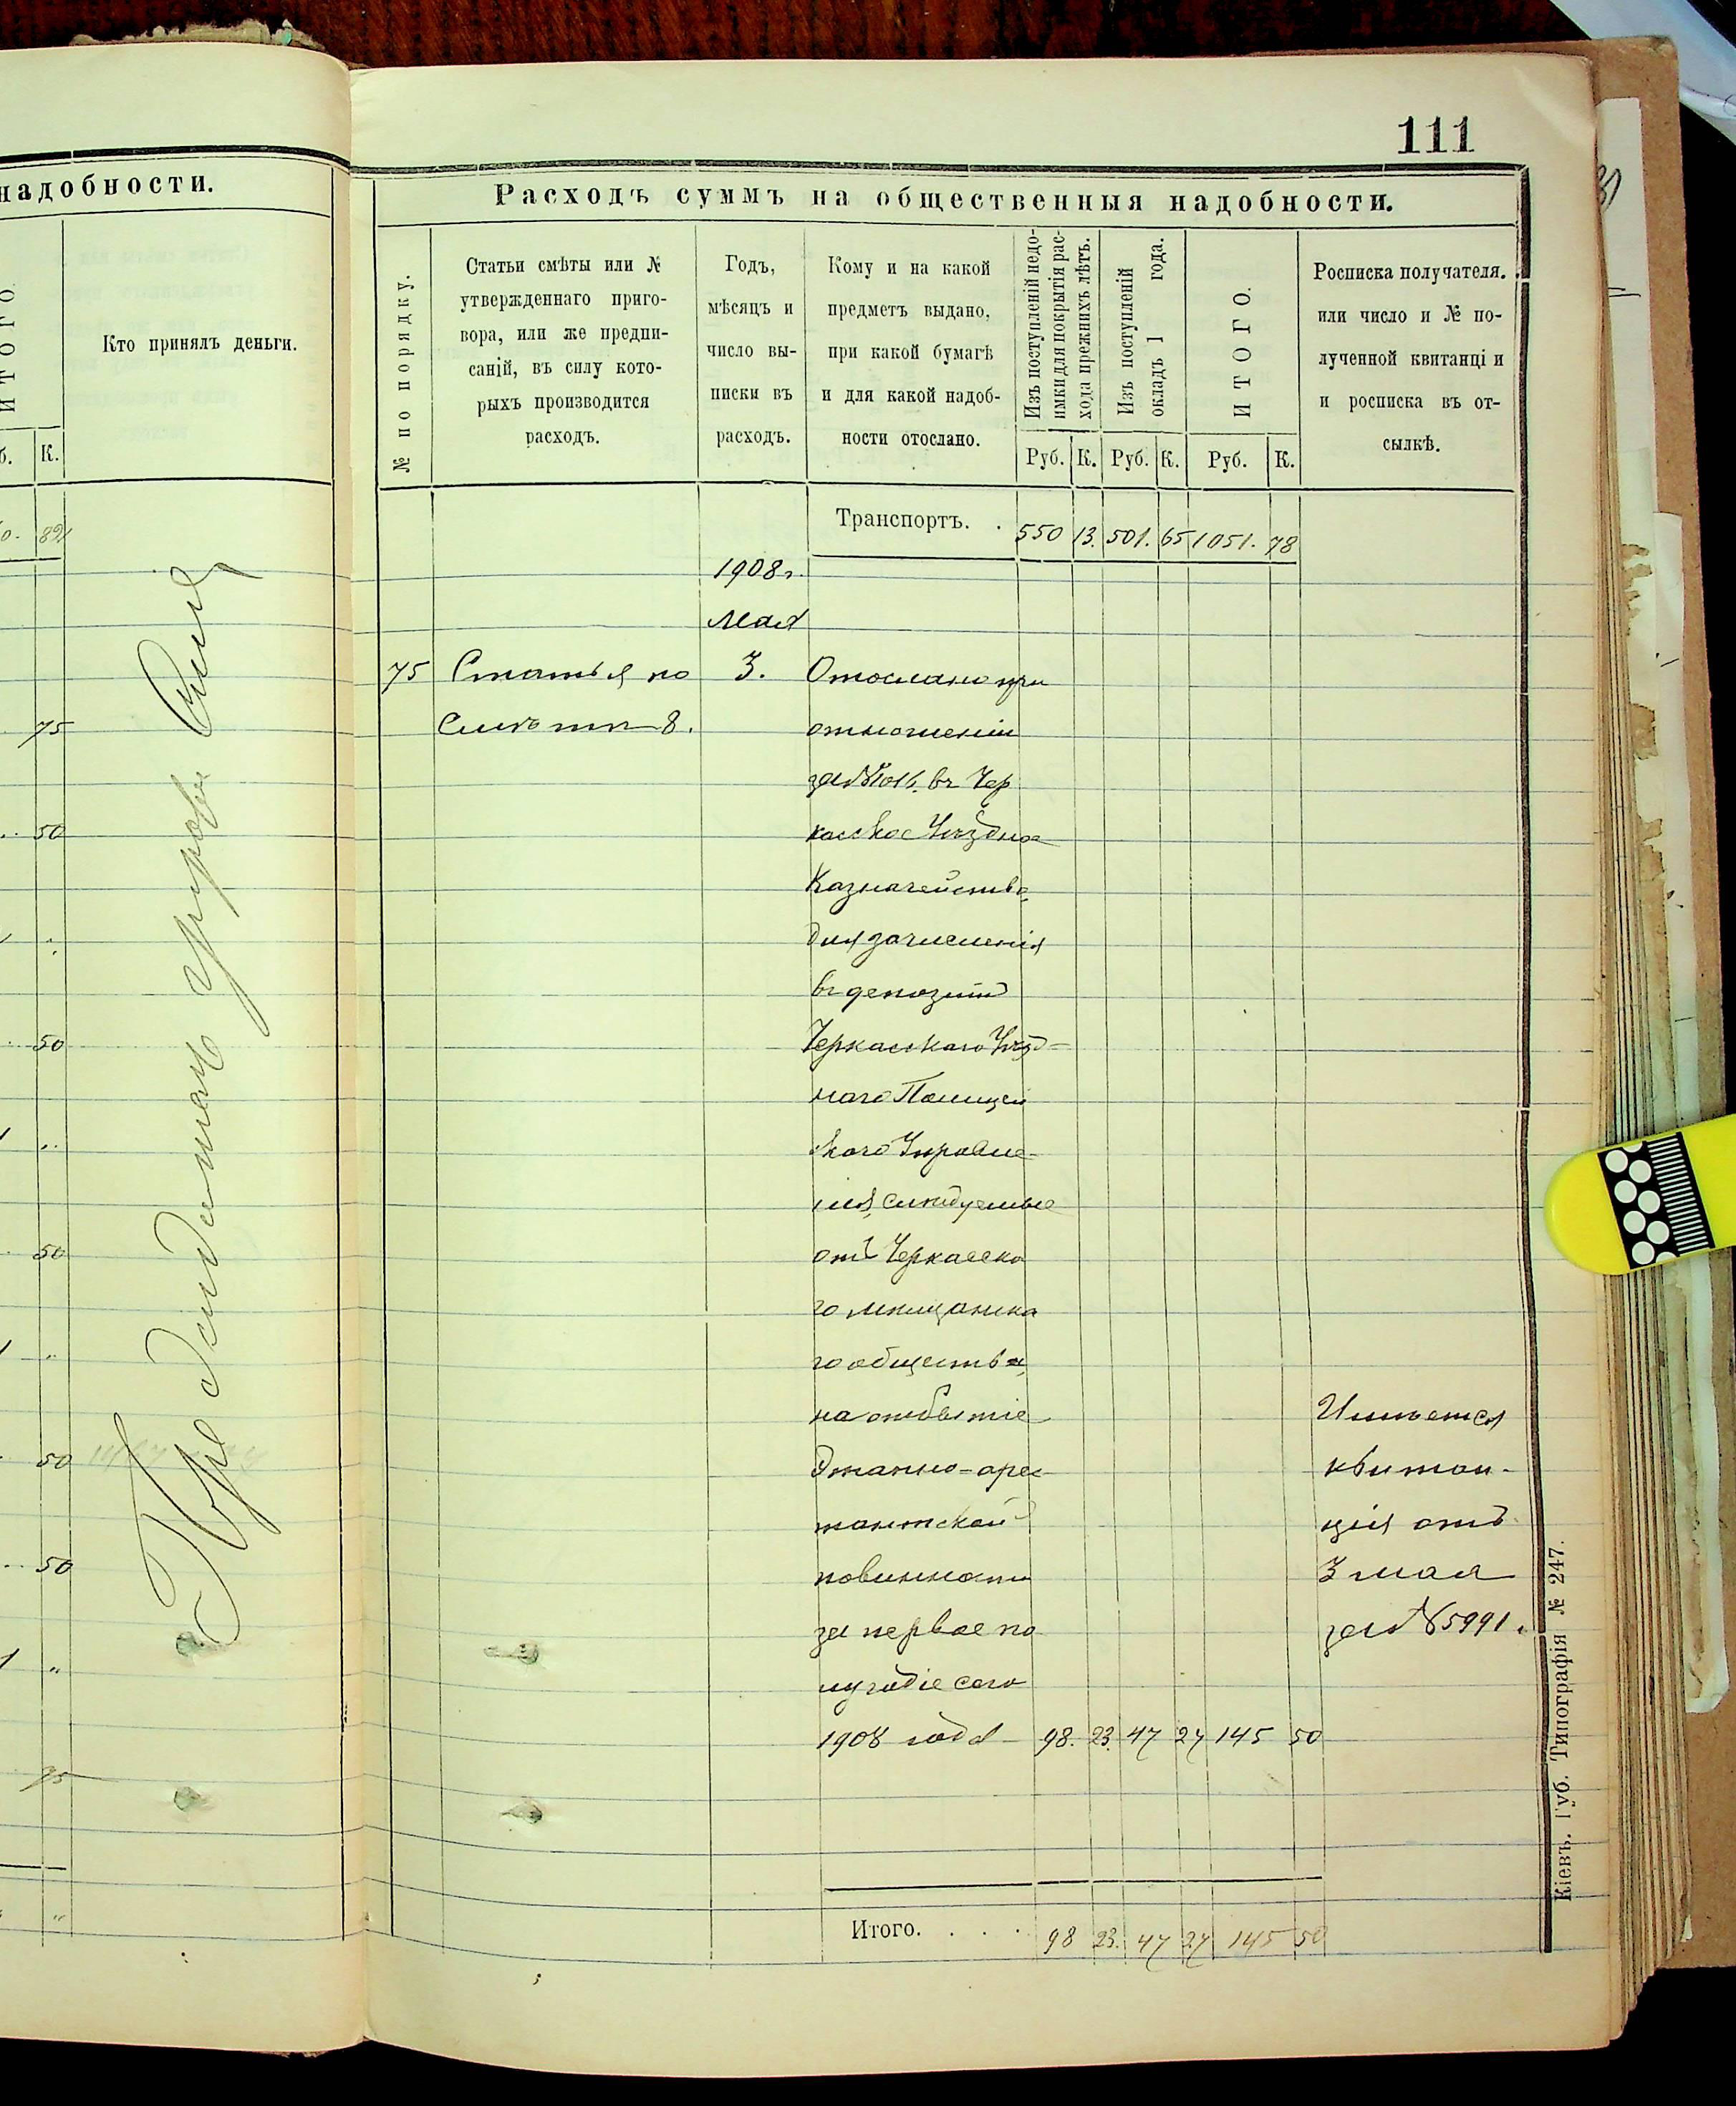 надобности.
ИТОГО.
Кто принялъ деньги.
К.
89
75
50
50
50
50
50
75
111
Расходъ суммъ на общественныя надобности.
№ по порядку.
Статьи смѣты или №
утвержденнаго приго-
вора, или же предпи-
саній, въ силу кото-
рыхъ производится
расходъ.
Годъ,
мѣсяцъ и
число вы-
писки въ
расходъ.
Кому и на какой
предметъ выдано,
при какой бумагѣ
и для какой надоб-
ности отослано.
Изъ поступленій недо-
имки для покрытія рас-
хода прежнихъ лѣтъ.
Изъ поступленій
окладъ 1 года.
ИТОГО.
Росписка получателя.
или число и № по-
лученной квитанці и
и росписка въ от-
сылкѣ.
Руб. К. Руб. К. Руб. К.
Транспортъ. . 550 13. 501. 65 1051. 78
1908 г.
Мая
75 Статья по 3. Отослано при
Смѣтѣ 8. отношеніи
за № 1016. въ Чер
касское Уѣздное
Казначейство,
для зачисленія
въ депозитъ
Черкасскаго Уѣзд-
наго Полицей
скаго Управле-
нія, слѣдуемые
отъ Черкасска
го мѣщанска
го общества,
на отбытіе Имѣется
Этапно-арес- квитан-
тантской ція отъ
повинности 3 мая
за первое по за № 5991.
лугодіе сего
1908 года - 98. 23. 47 27 145 50
Итого. . . . 98 23. 47 27 145 50
Кіевъ. Губ. Типографія № 247.